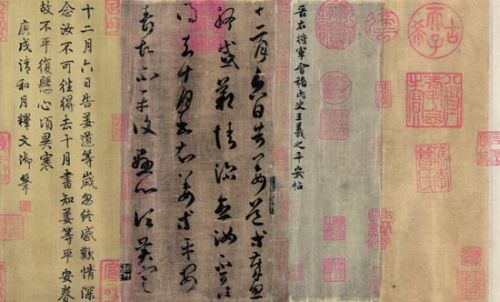 古希天子
晉右將軍會稽內史王羲之平安帖
十二月六日告姜道等歲忽
終感歎情深念汝不可往
得去十月書知姜等平安
眷故不平復懸心頃異寒
十二月六日告姜道等歲忽終感歎情深
念汝不可往得去十月書知姜等平安眷
故不平復懸心頃異寒
庚戌清和月釋文御筆